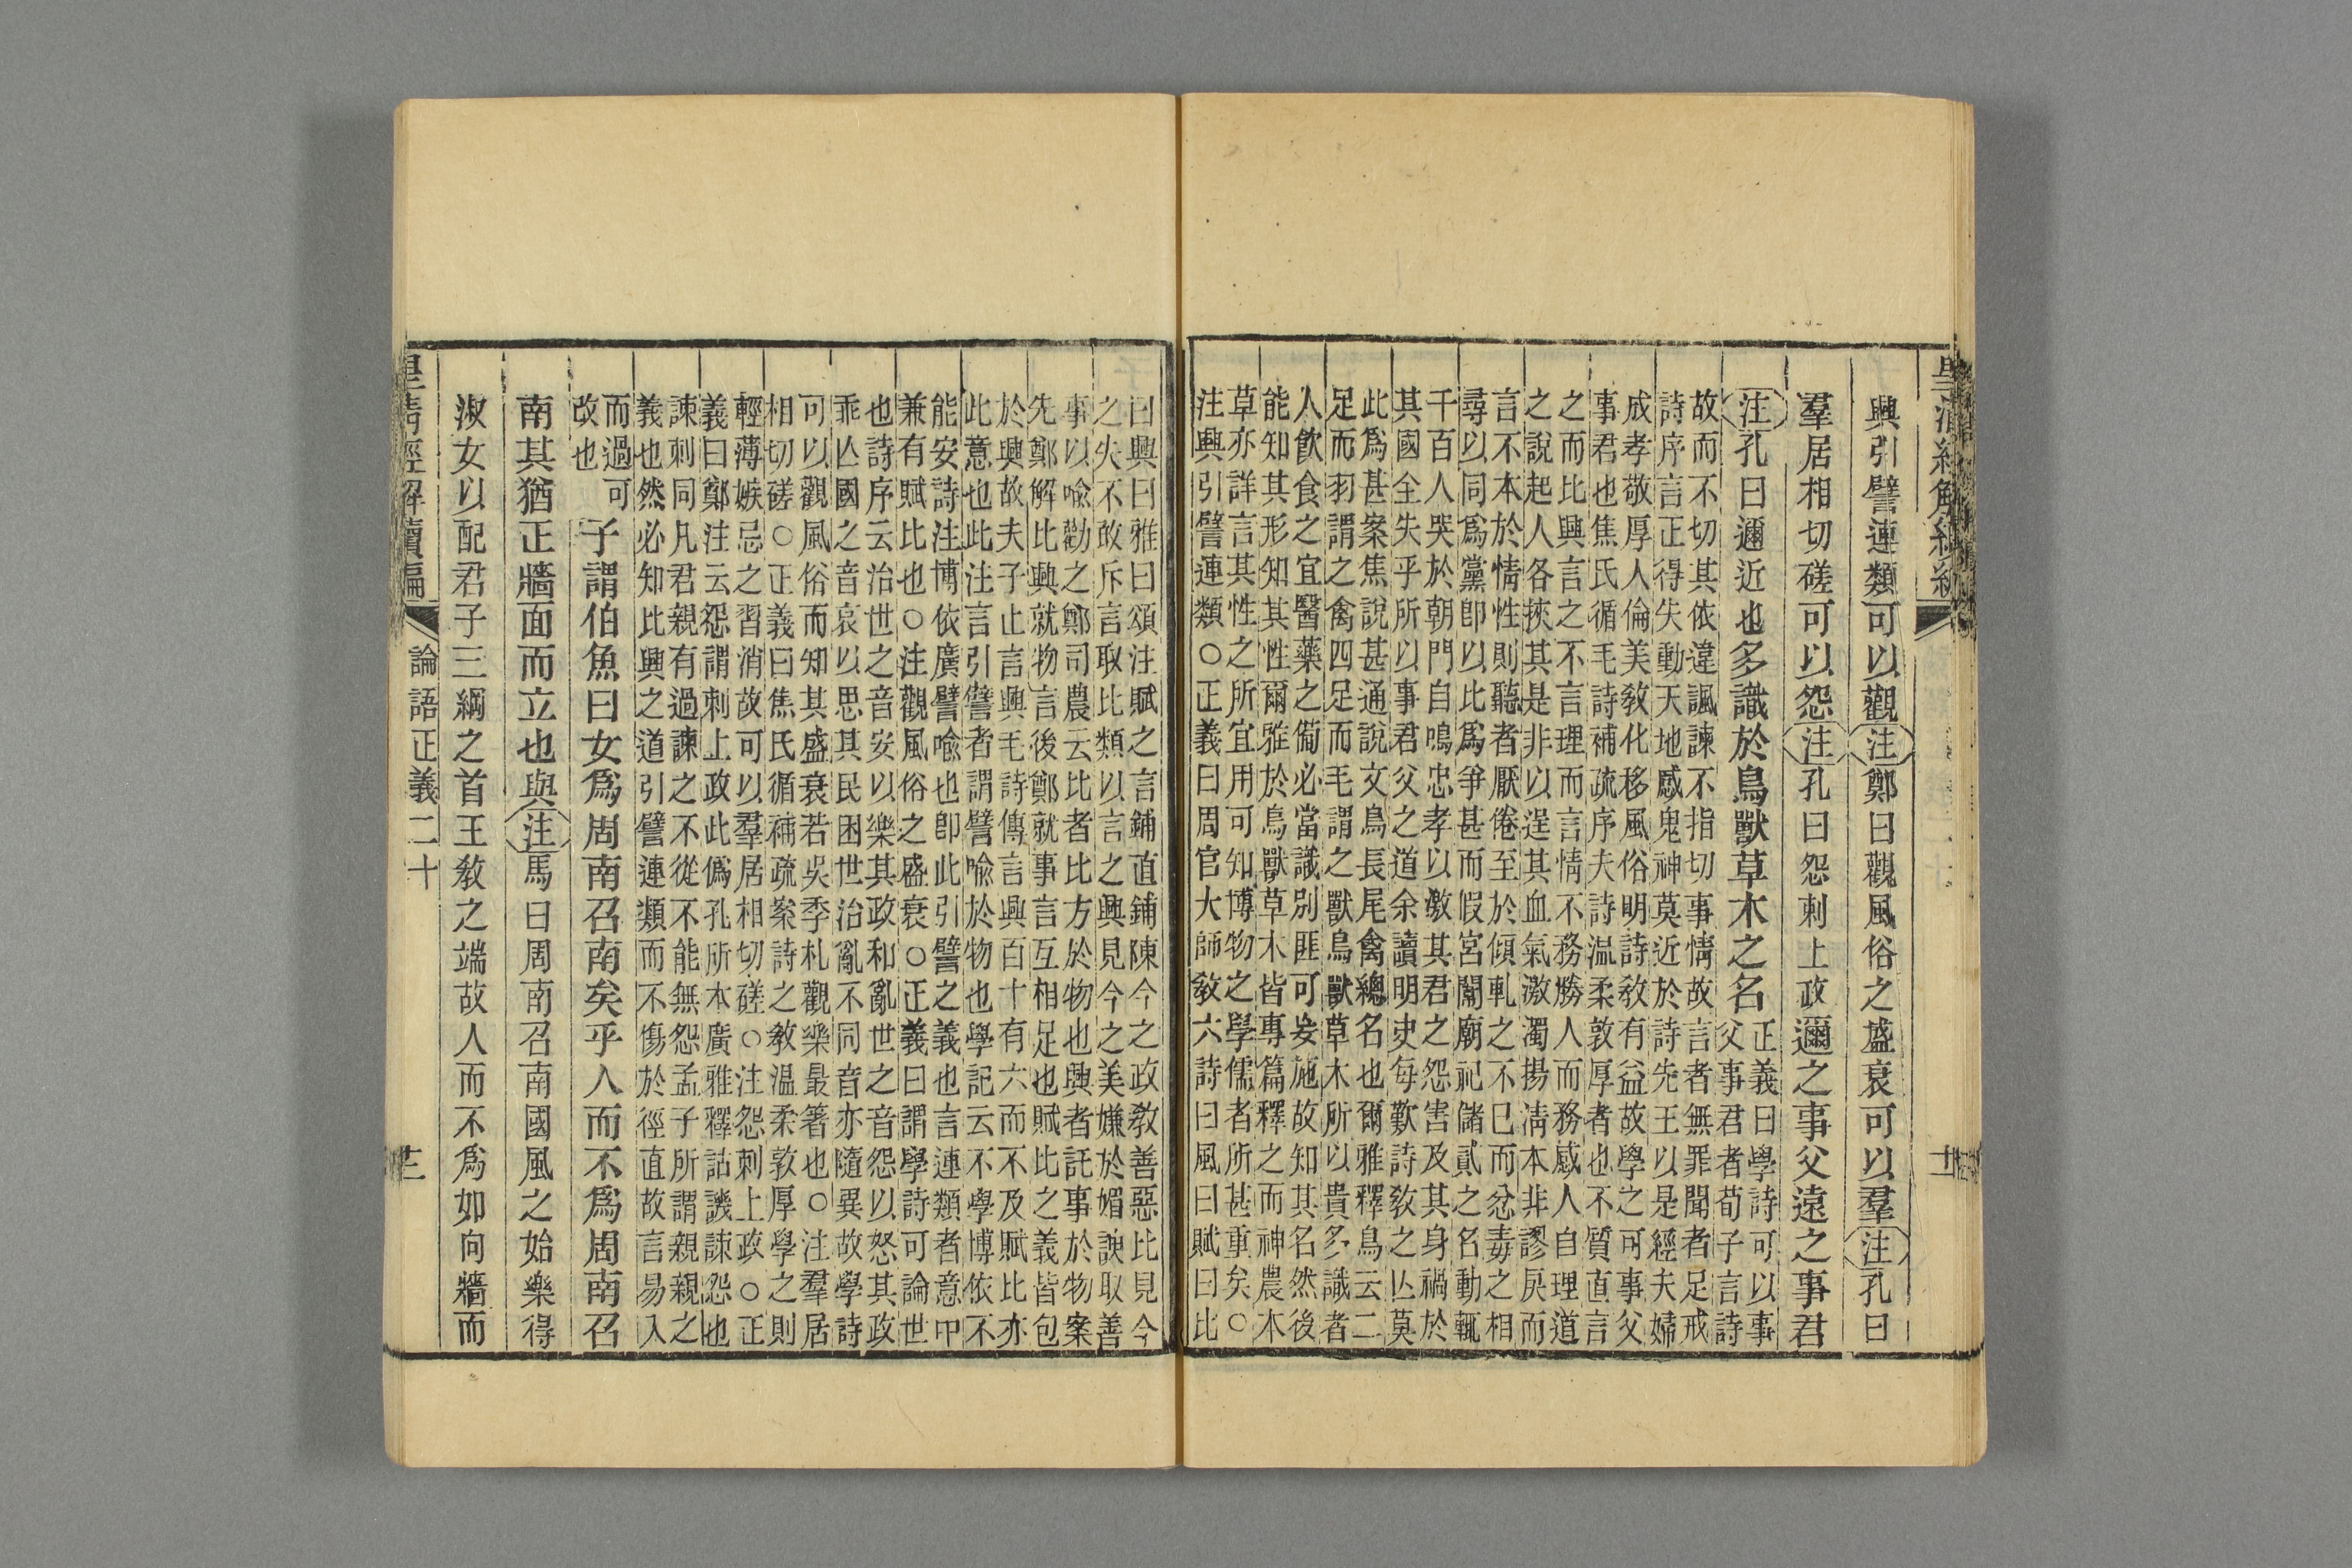 興引譬連類可以觀注鄭曰觀風俗之盛衰可以羣注孔曰
羣居相切磋可以怨注孔曰怨刺上政邇之事父遠之事君
注孔曰邇近也多識於鳥獸草木之名
正義曰學詩可以事
父事君者荀子言詩
故而不切其依違諷諫不指切事情故言者無罪聞者足戒
詩序言正得失動天地感鬼神莫近於詩先王以是經夫婦
成孝敬厚人倫美敎化移風俗明詩敎有益故學之可事父
事君也焦氏循毛詩補疏序夫詩温柔敦厚者也不質直言
之而比興言之不言理而言情不務勝人而務感人自理道
之說起人各挾其是非以逞其血氣激濁揚淸本非謬戾而
言不本於情性則聽者厭倦至於傾軋之不已而忿毒之相
尋以同爲黨卽以比爲爭甚而假宮闈廟祀儲貳之名動輒
千百人哭於朝門自鳴忠孝以激其君之怨害及其身禍於
其國全失乎所以事君父之道余讀明史每歎詩敎之亾莫
此爲甚案焦說甚通說文鳥長尾禽總名也爾雅釋鳥云二
足而羽謂之禽四足而毛謂之獸鳥獸草木所以貴多識者
人飮食之宜醫藥之備必當識別匪可妄施故知其名然後
能知其形知其性爾雅於鳥獸草木皆專篇釋之而神農木
草亦詳言其性之所宜用可知博物之學儒者所甚重矣○
注興引譬連類○正義曰周官大師敎六詩曰風曰賦曰比
曰興曰雅曰頌注賦之言鋪直鋪陳今之政敎善惡比見今
之失不敢斥言取比類以言之興見今之美嫌於媚諛取善
事以喻勸之鄭司農云比者比方於物也興者託事於物案
先鄭解比興就物言後鄭就事言互相足也賦比之義皆包
於興故夫子止言興毛詩傳言興百十有六而不及賦比亦
此意也此注言引譬者謂譬喻於物也學記云不學博依不
能安詩注博依廣譬喻也卽此引譬之義也言連類者意中
兼有賦比也○注觀風俗之盛衰○正義曰謂學詩可論世
也詩序云治世之音安以樂其政和亂世之音怨以怒其政
乖亾國之音哀以思其民困世治亂不同音亦隨異故學詩
可以觀風俗而知其盛衰若吳季札觀樂最著也○注羣居
相切磋○正義曰焦氏循補疏案詩之敎温柔敦厚學之則
輕薄嫉忌之習消故可以羣居相切磋○注怨刺上政○正
義曰鄭注云怨謂刺上政此僞孔所本廣雅釋詁譏諫怨也
諫刺同凡君親有過諫之不從不能無怨孟子所謂親親之
義也然必知比興之道引譬連類而不傷於徑直故言易入
而過可
改也
子謂伯魚曰女爲周南召南矣乎人而不爲周南召
南其猶正牆面而立也與注馬曰周南召南國風之始樂得
淑女以配君子三綱之首王敎之端故人而不爲如向牆而
皇淸經解續編
論語正義二十